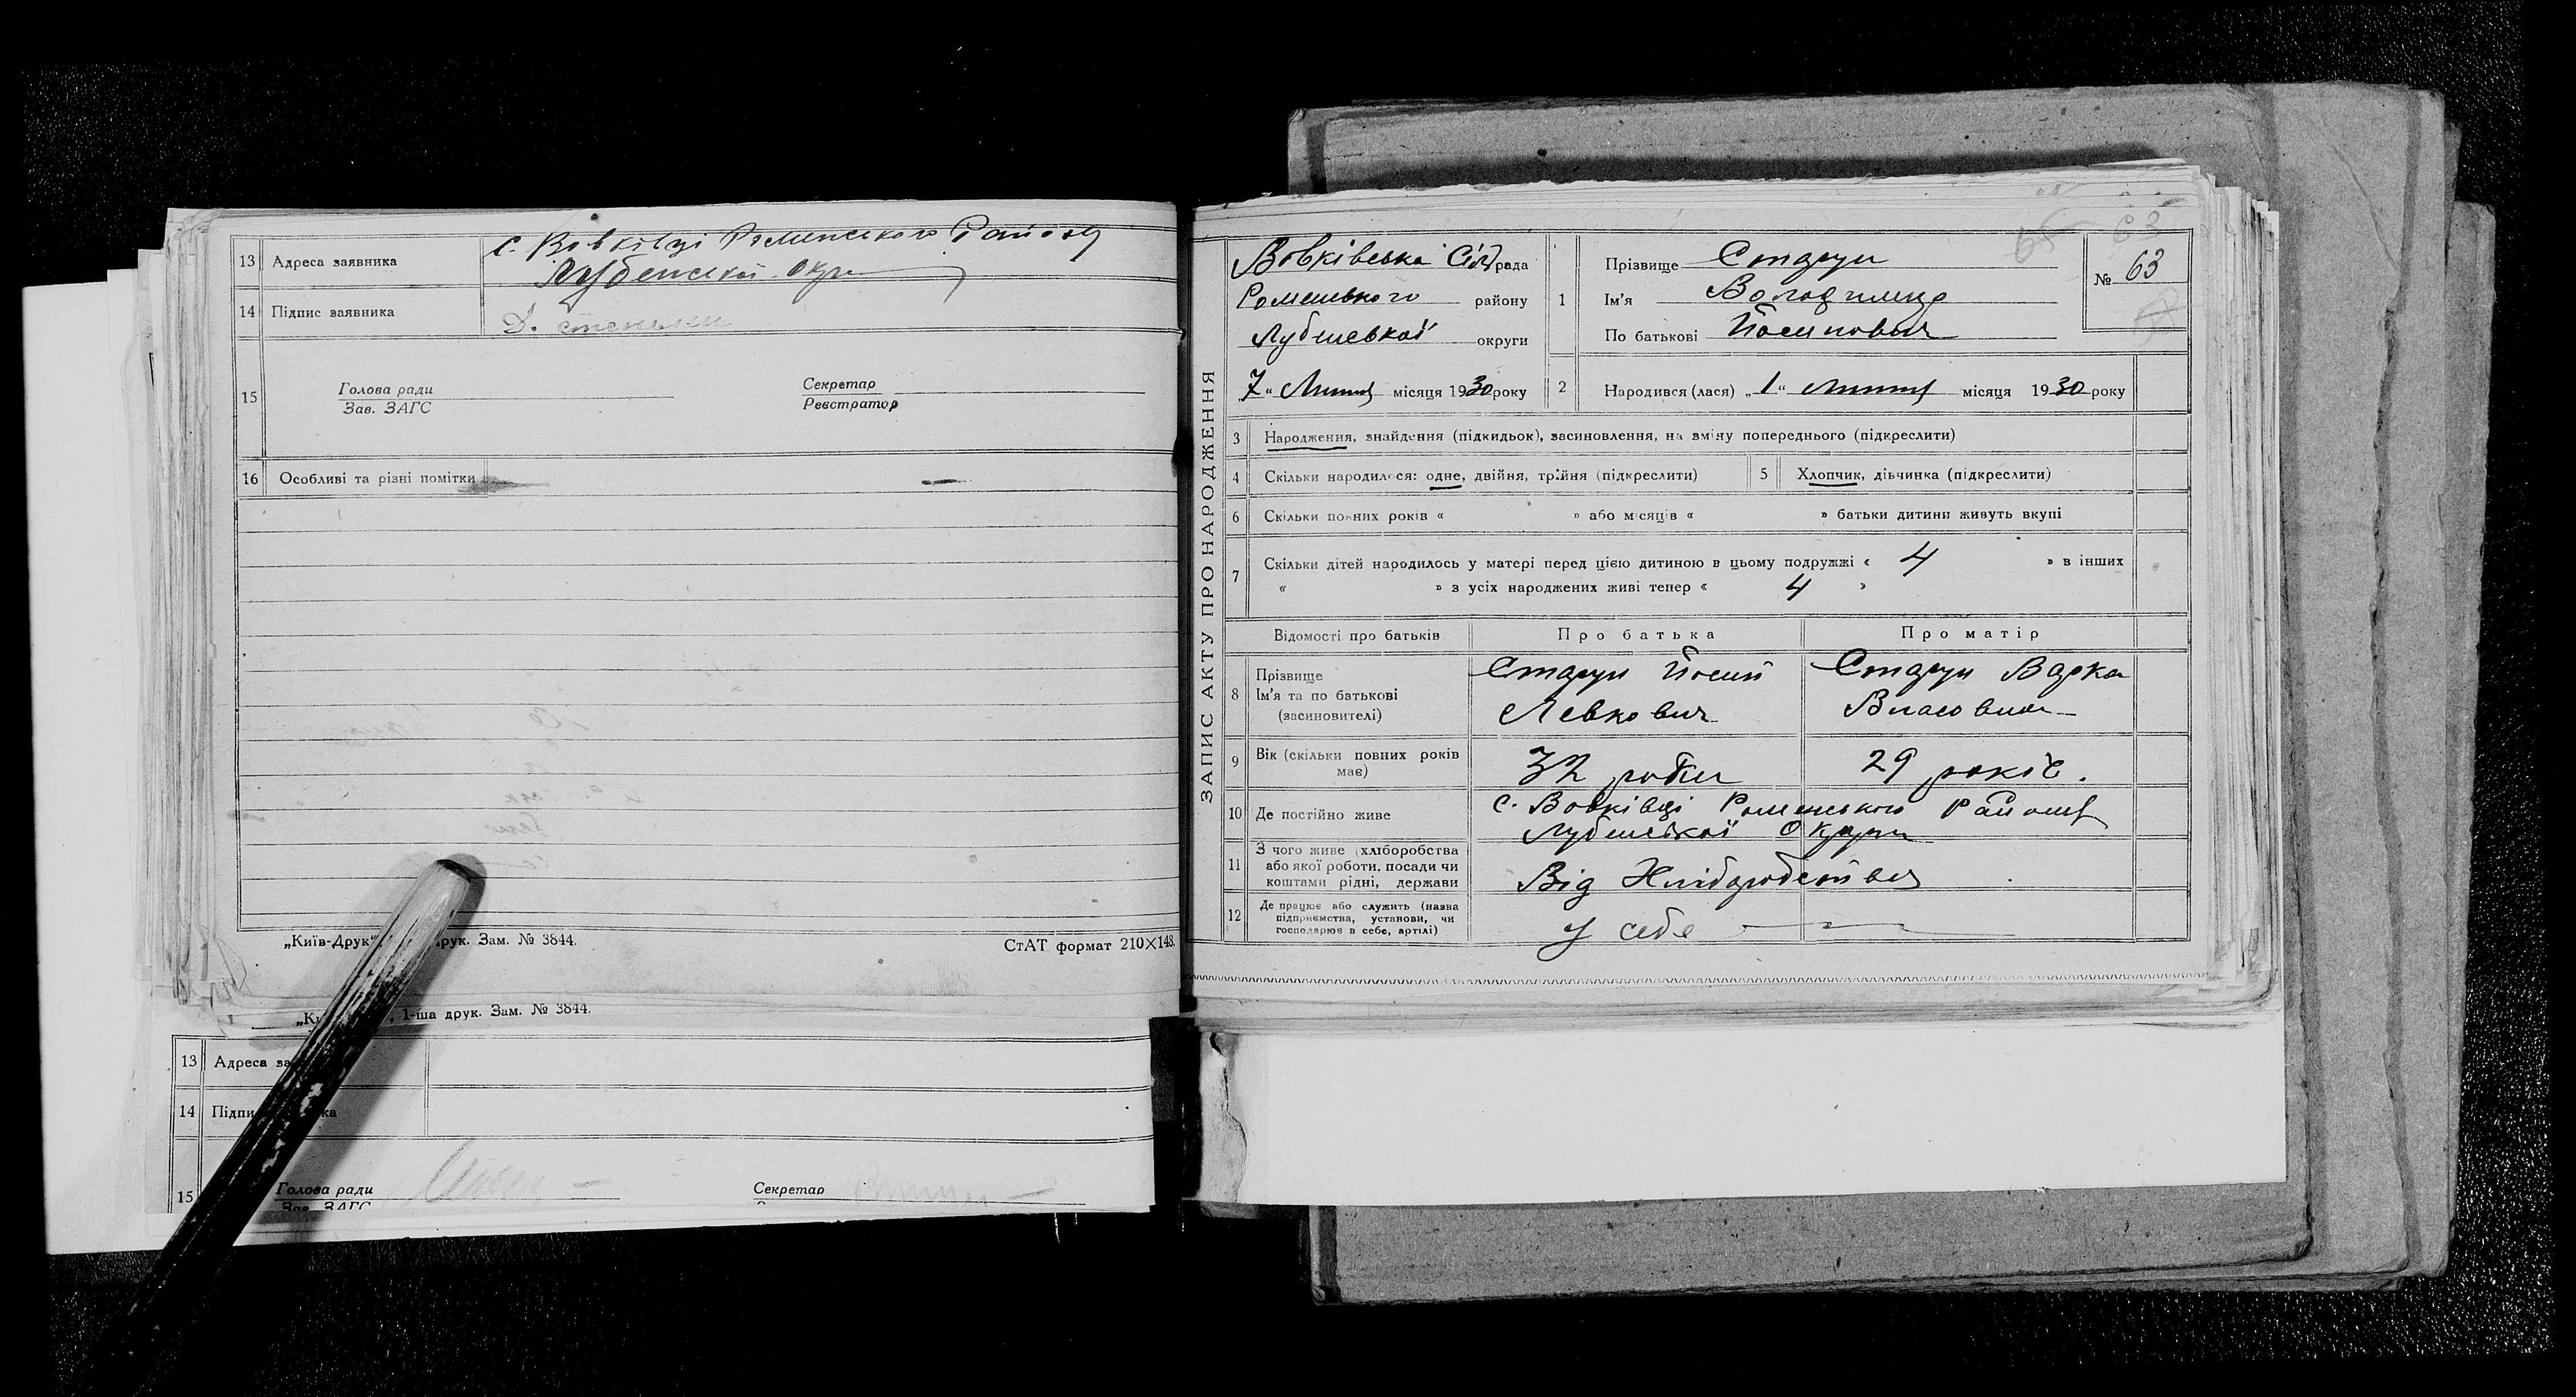 13 Адреса заявника с. Вовківці Роменського Району
Лубенської Окр.
14 Підпис заявника
15 Голова ради
Зав. ЗАГС
Секретар
Реєстратор
16 Особливі та різні помітки
„Київ-Друк“, друк. Зам. № 3844.
СтАТ формат 210×148.
1-ша друк. Зам. № 3844.
13 Адреса
14
15 Голова ради
Зав. ЗАГС
Секретар
ЗАПИС АКТУ ПРО НАРОДЖЕННЯ
Вовківська Сілрада
Роменського району
Лубенської округи
„7“ Липня місяця 1930 року
1 Прізвище
Ім'я Володимир
По батькові Йосипович
63
№ 63
2 Народився (лася) „1“ Липня місяця 1930 року
3 Народження, знайдення (підкидьок), засиновлення, на зміну попереднього (підкреслити)
4 Скільки народилося: одне, двійня, трійня (підкреслити)
5 Хлопчик, дівчинка (підкреслити)
6 Скільки повних років « » або місяців « » батьки дитини живуть вкупі
7 Скільки дітей народилось у матері перед цією дитиною в цьому подружжі « 4 » в інших
« » з усіх народжених живі тепер « 4 »
Відомості про батьків
Про батька
Про матір
8 Прізвище
Ім'я та по батькові
(засновителі)
Йосип
Левкович
Варка
Власовна
9 Вік (скільки повних років
має)
32 роки
29 років.
10 Де постійно живе
с. Вовківці Роменського Району
Лубенської Округи
11 З чого живе (хліборобства
або якої роботи, посади чи
коштами рідні, держави
Від Хліборобства
12 Де працює або служить (назва
підприємства, установи, чи
господарює в себе, артілі)
У себе